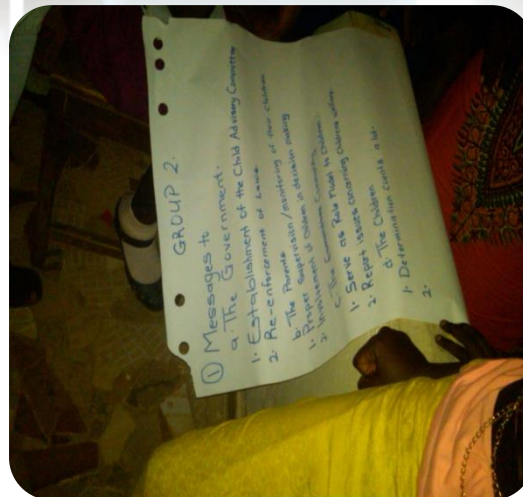 GROUP 2.
① Messages to
a. The Government.
1. Establishment of the Child Advisory Committee
2. Re-enforcement of Laws.
b. The Parents
1. Proper Supervision/monitoring of their children
2. Involvement of Children in decision making
c. The Community
1. Serve as Role Model to Children
2. Report issues concerning children welfare.
d. The Children
1. Determination counts a lot.
2.